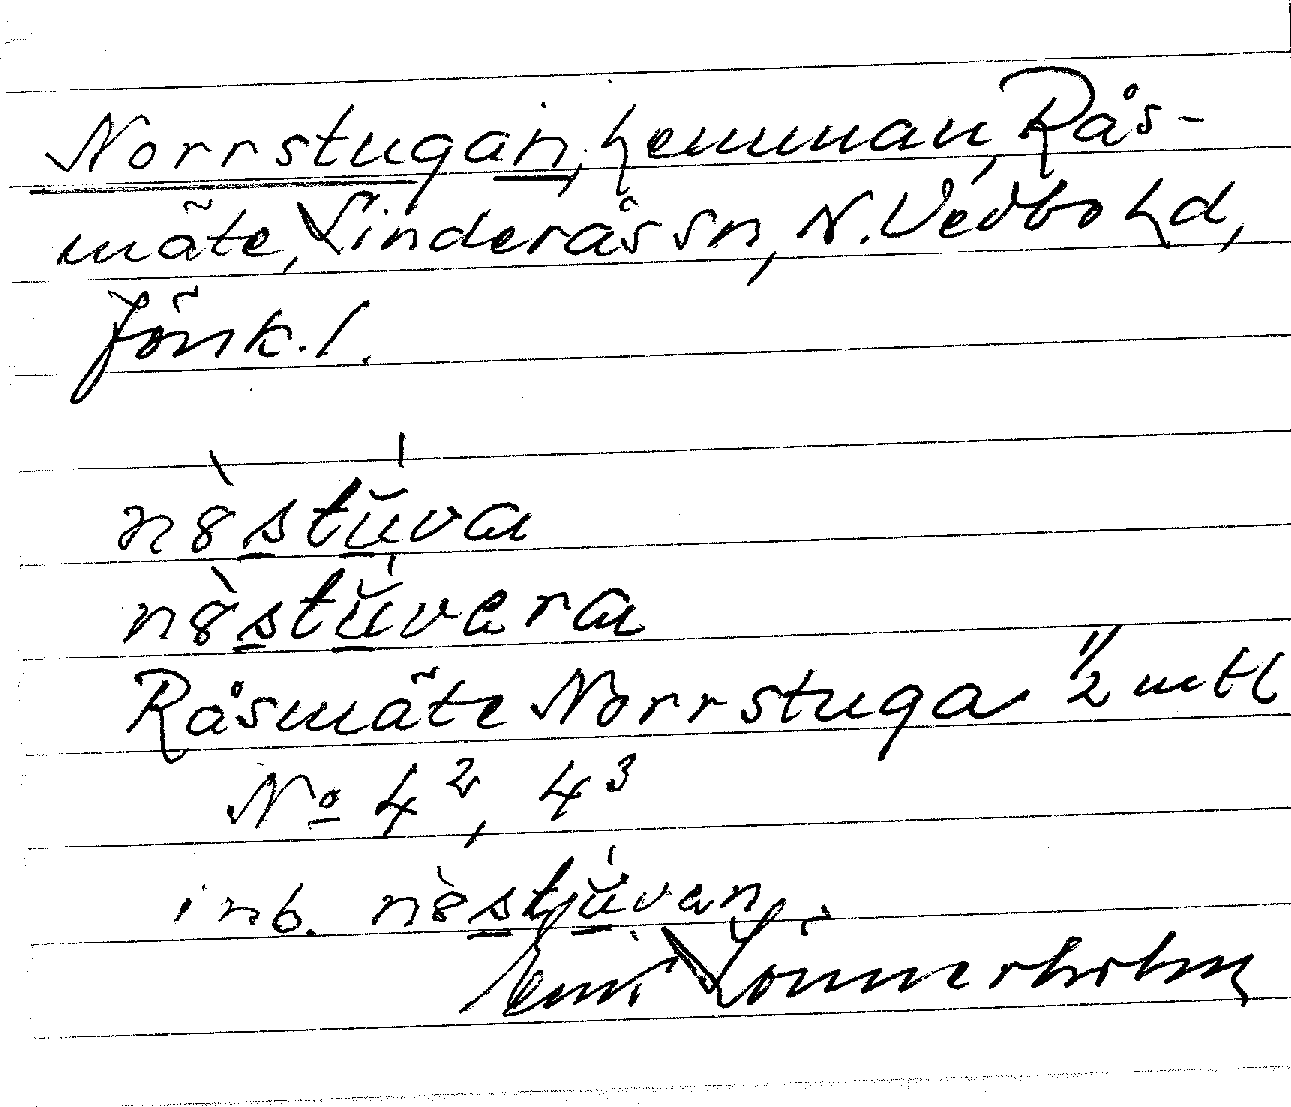 Norrstugan, hemman, Rås-
mäte, Linderås sn, N. Vedbo hd,
Jönk. l.
nȣ̀stŭ́va
nȣ̀stŭ́vera
Råsmäte Norrstuga 1/2 mtl
No 4², 4³
inb. nȣ̀stŭ́van
Lönnerholm